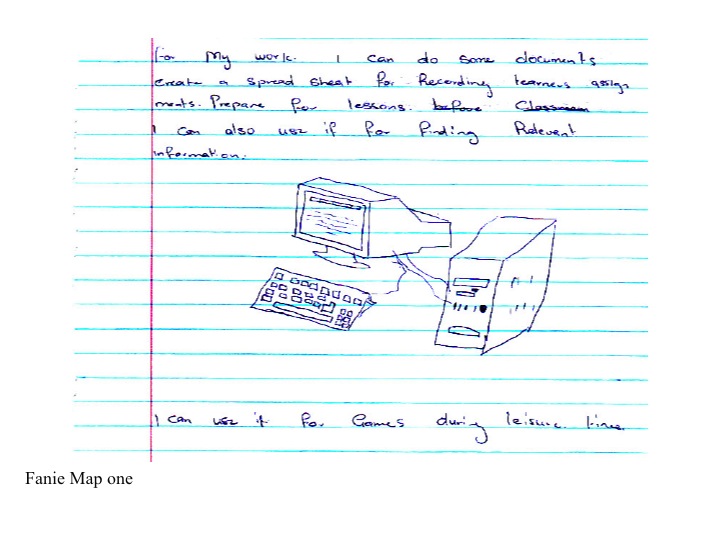 For My work. I can do some documents
create a spread sheat for Recording learners assign
ments. Prepare for lessons. before Classroom
I can also use if for finding Relevent
information.
I can use it for Games during leisure time
Fanie Map one